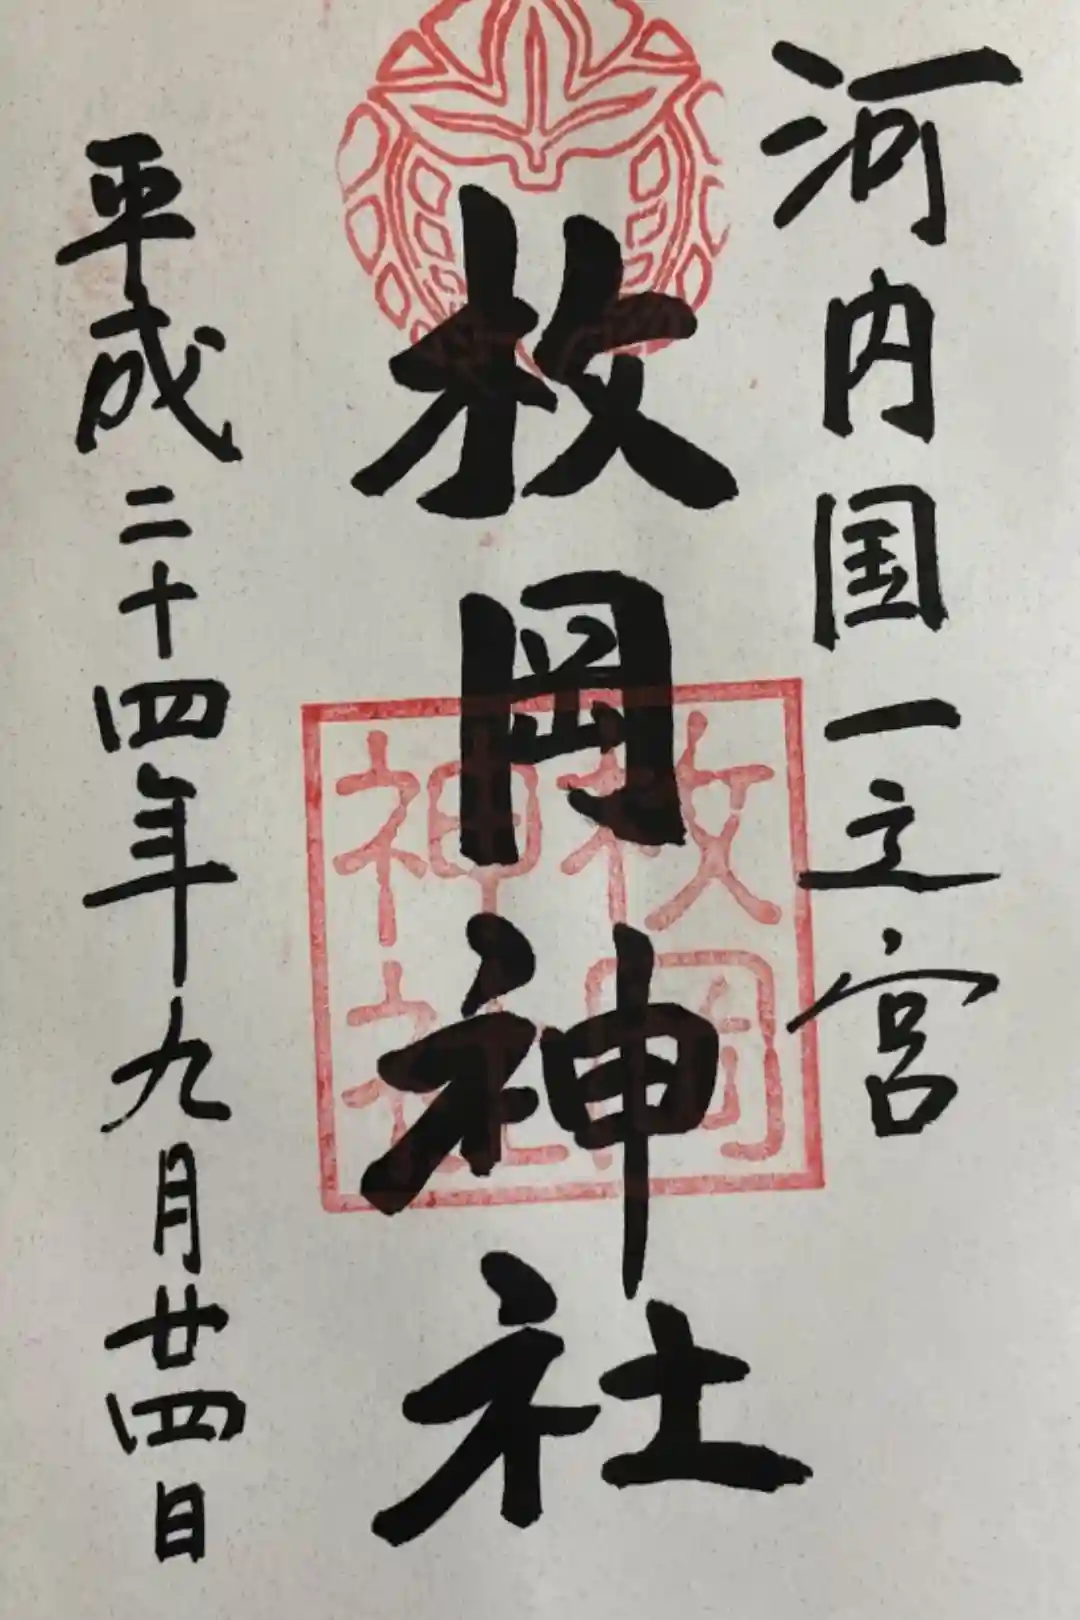 河内国一之宮
枚岡神社
枚岡
神社
平成二十四年九月廿四日